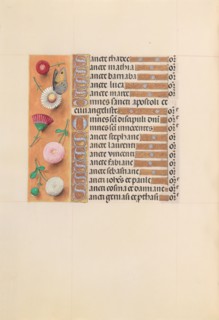 Sancte thadee or
Sancte mathia or
Sancte barnaba or
Sancte luca or
Sancte marce or
Omnes sancti apostoli et
euangeliste or
Omnes sci discipuli dni or
Omnes sci innocentes or
Sancte stephane or
Sancte laurenti or
Sancte vincenti or
Sancte fabiane or
Sancte sebastiane or
Sancti iohes et paule or
Sancti cosma et damiane or
Sancti geruasi et pthasi or